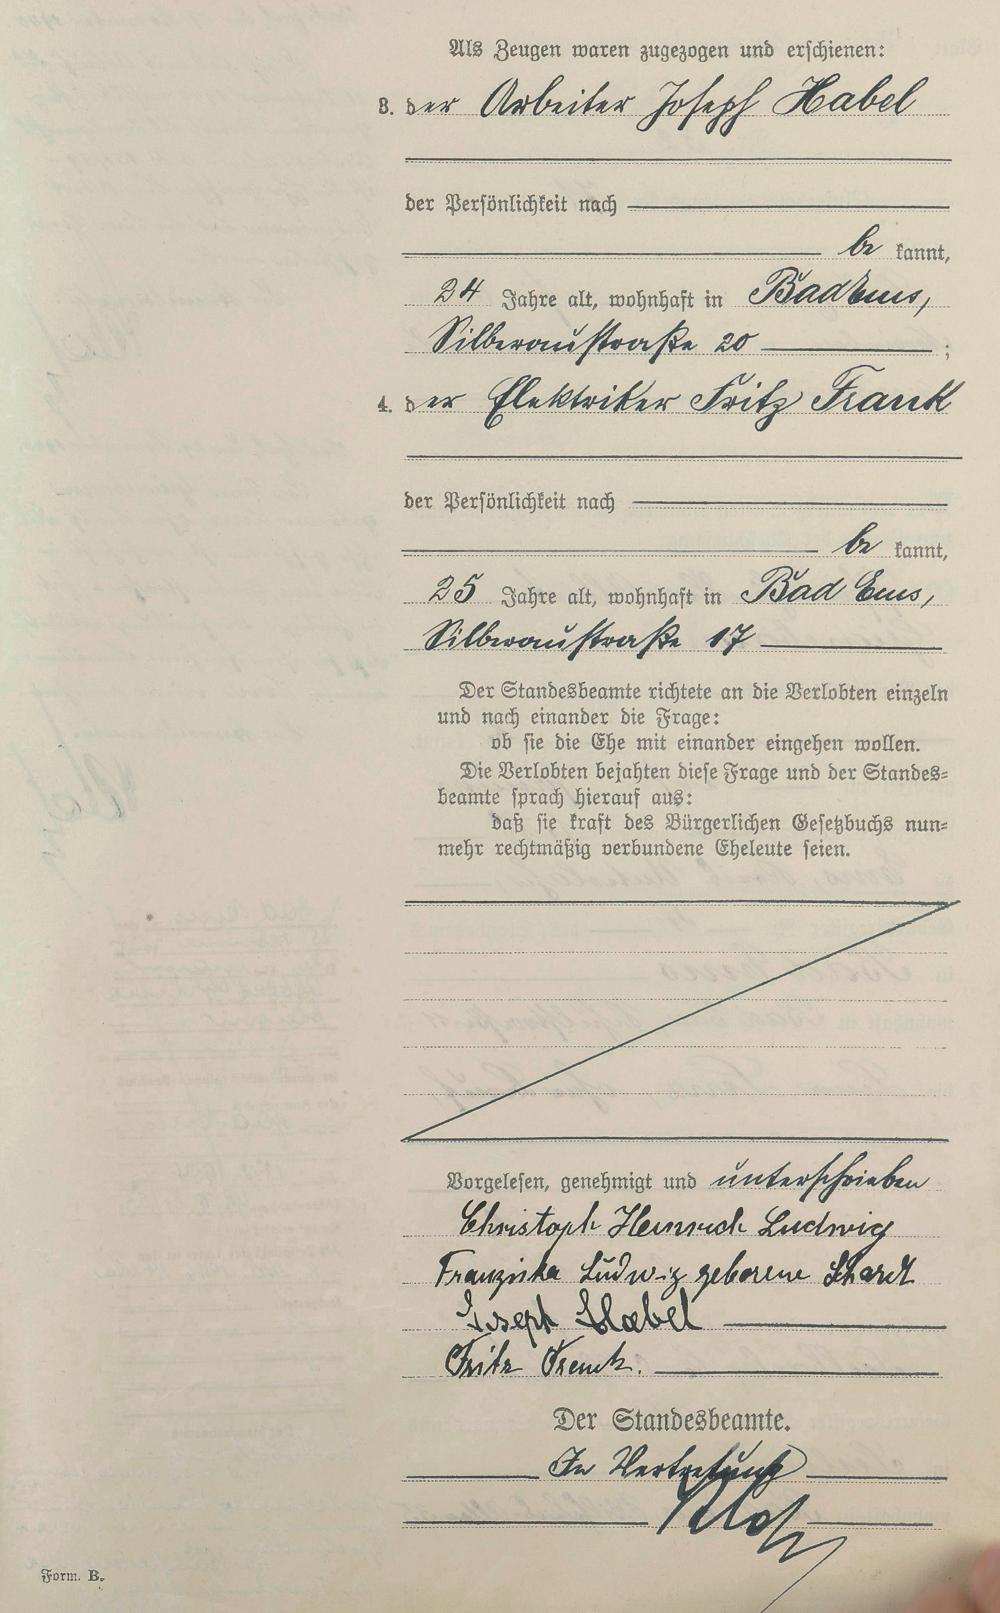 Als Zeugen waren zugezogen und erschienen:
3. der Arbeiter Joseph Habel
der Persönlichkeit nach
be kannt,
24 Jahre alt, wohnhaft in Bad Ems,
Silberaustraße 20 ;
4. der Elektriker Fritz Frank
der Persönlichkeit nach
be kannt,
25 Jahre alt, wohnhaft in Bad Ems,
Silberaustraße 17
Der Standesbeamte richtete an die Verlobten einzeln
und nach einander die Frage:
ob sie die Ehe mit einander eingehen wollen.
Die Verlobten bejahten diese Frage und der Standes=
beamte sprach hierauf aus:
daß sie kraft des Bürgerlichen Gesetzbuchs nun=
mehr rechtmäßig verbundene Eheleute seien.
Vorgelesen, genehmigt und unterschrieben
Christoph Heinrich Ludwig
Franziska Ludwig geborene Schardt
Joseph Habel
Fritz Frank.
Der Standesbeamte.
In Vertretung
Form. B.